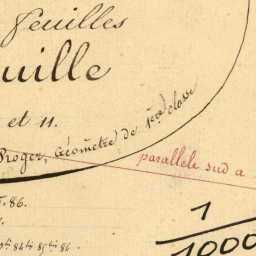 Feuilles
uille
et 11.
Roger, Géomètre de 1ère classe
parallèle sud a
86.
1
1000